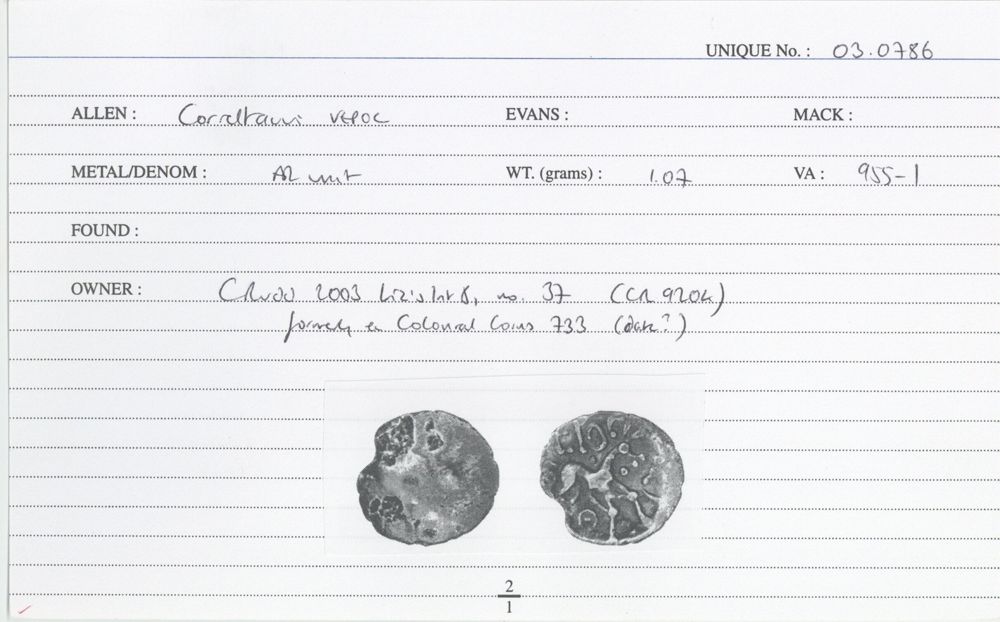 UNIQUE No. : 03.0786
ALLEN : Corieltauvi VEPOC EVANS : MACK :
METAL/DENOM : AR unit WT. (grams) : 1.07 VA : 955-1
FOUND :
OWNER : CRudd 2003 Liz's list 8, no. 37 (CR 9204)
formerly ex Colonial Coins 733 (date?)
2
1